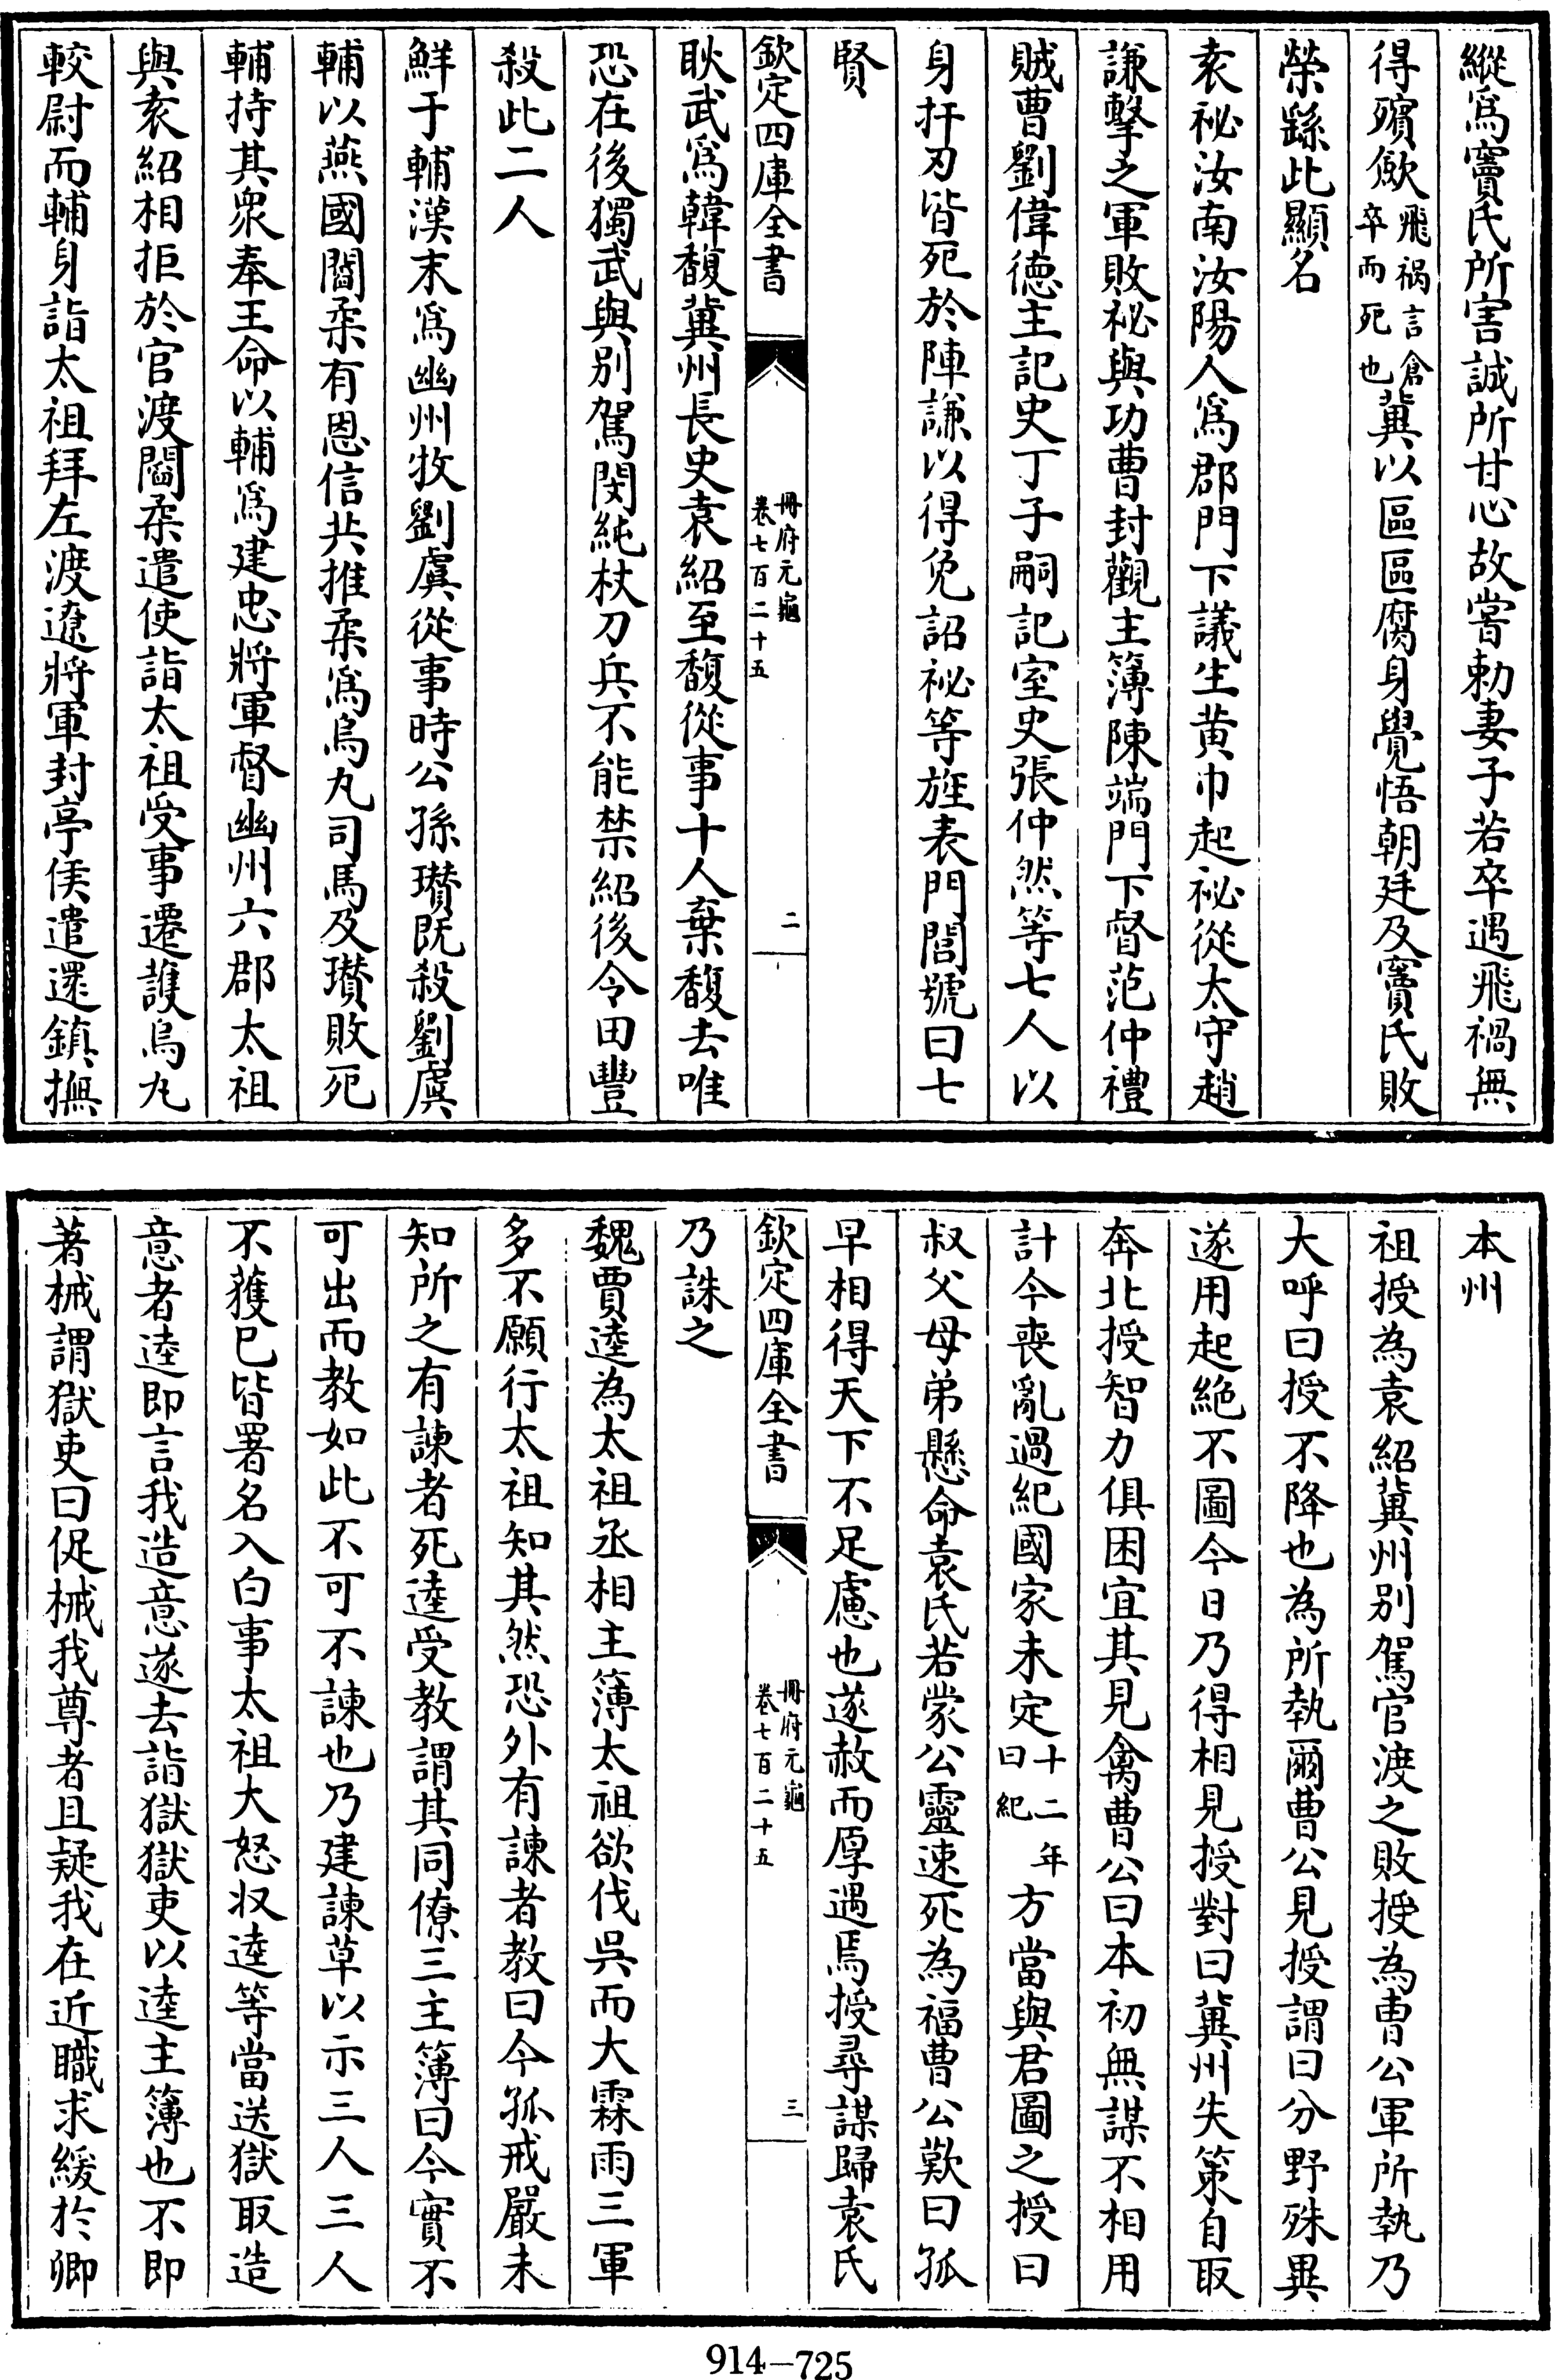 縱為竇氏所害誠所甘心故嘗勅妻子若卒遇飛禍無
得殯歛飛禍言倉卒而死也冀以區區腐身覺悟朝廷及竇氏敗
榮繇此顯名
袁祕汝南汝陽人為郡門下議生黄巾起祕從太守趙
謙擊之軍敗祕與功曹封觀主簿陳端門下督范仲禮
賊曹劉偉德主記史丁子嗣記室史張仲然等七人以
身扞刃皆死於陣謙以得免詔祕等旌表門閭號曰七
賢
欽定四庫全書
冊府元龜
卷七百二十五
二
耿武為韓馥冀州長史袁紹至馥從事十人棄馥去唯
恐在後獨武與别駕閔純杖刀兵不能禁紹後令田豐
殺此二人
鮮于輔漢末為幽州牧劉虞從事時公孫瓚既殺劉虞
輔以燕國閻柔有恩信共推柔為烏丸司馬及瓚敗死
輔持其衆奉王命以輔為建忠將軍督幽州六郡太祖
與袁紹相拒於官渡閻柔遣使詣太祖受事遷護烏丸
較尉而輔身詣太祖拜左渡遼將軍封亭侯遣還鎮撫
本州
祖授為袁紹冀州别駕官渡之敗授為曹公軍所執乃
大呼曰授不降也為所執爾曹公見授謂曰分野殊異
遂用起絶不圖今日乃得相見授對曰冀州失策自取
奔北授智力俱困宜其見禽曹公曰本初無謀不相用
計今喪亂過紀國家未定十二年曰紀方當與君圖之授曰
叔父母弟懸命袁氏若蒙公靈速死為福曹公歎曰孤
早相得天下不足慮也遂赦而厚遇焉授尋謀歸袁氏
欽定四庫全書
冊府元龜
卷七百二十五
三
乃誅之
魏賈逵為太祖丞相主簿太祖欲伐吳而大霖雨三軍
多不願行太祖知其然恐外有諫者教曰今孤戒嚴未
知所之有諫者死逵受教謂其同僚三主簿曰今實不
可出而教如此不可不諫也乃建諫草以示三人三人
不獲已皆署名入白事太祖大怒收逵等當送獄取造
意者逵即言我造意遂去詣獄獄吏以逵主簿也不即
著械謂獄吏曰促械我尊者且疑我在近職求緩於卿
914-725